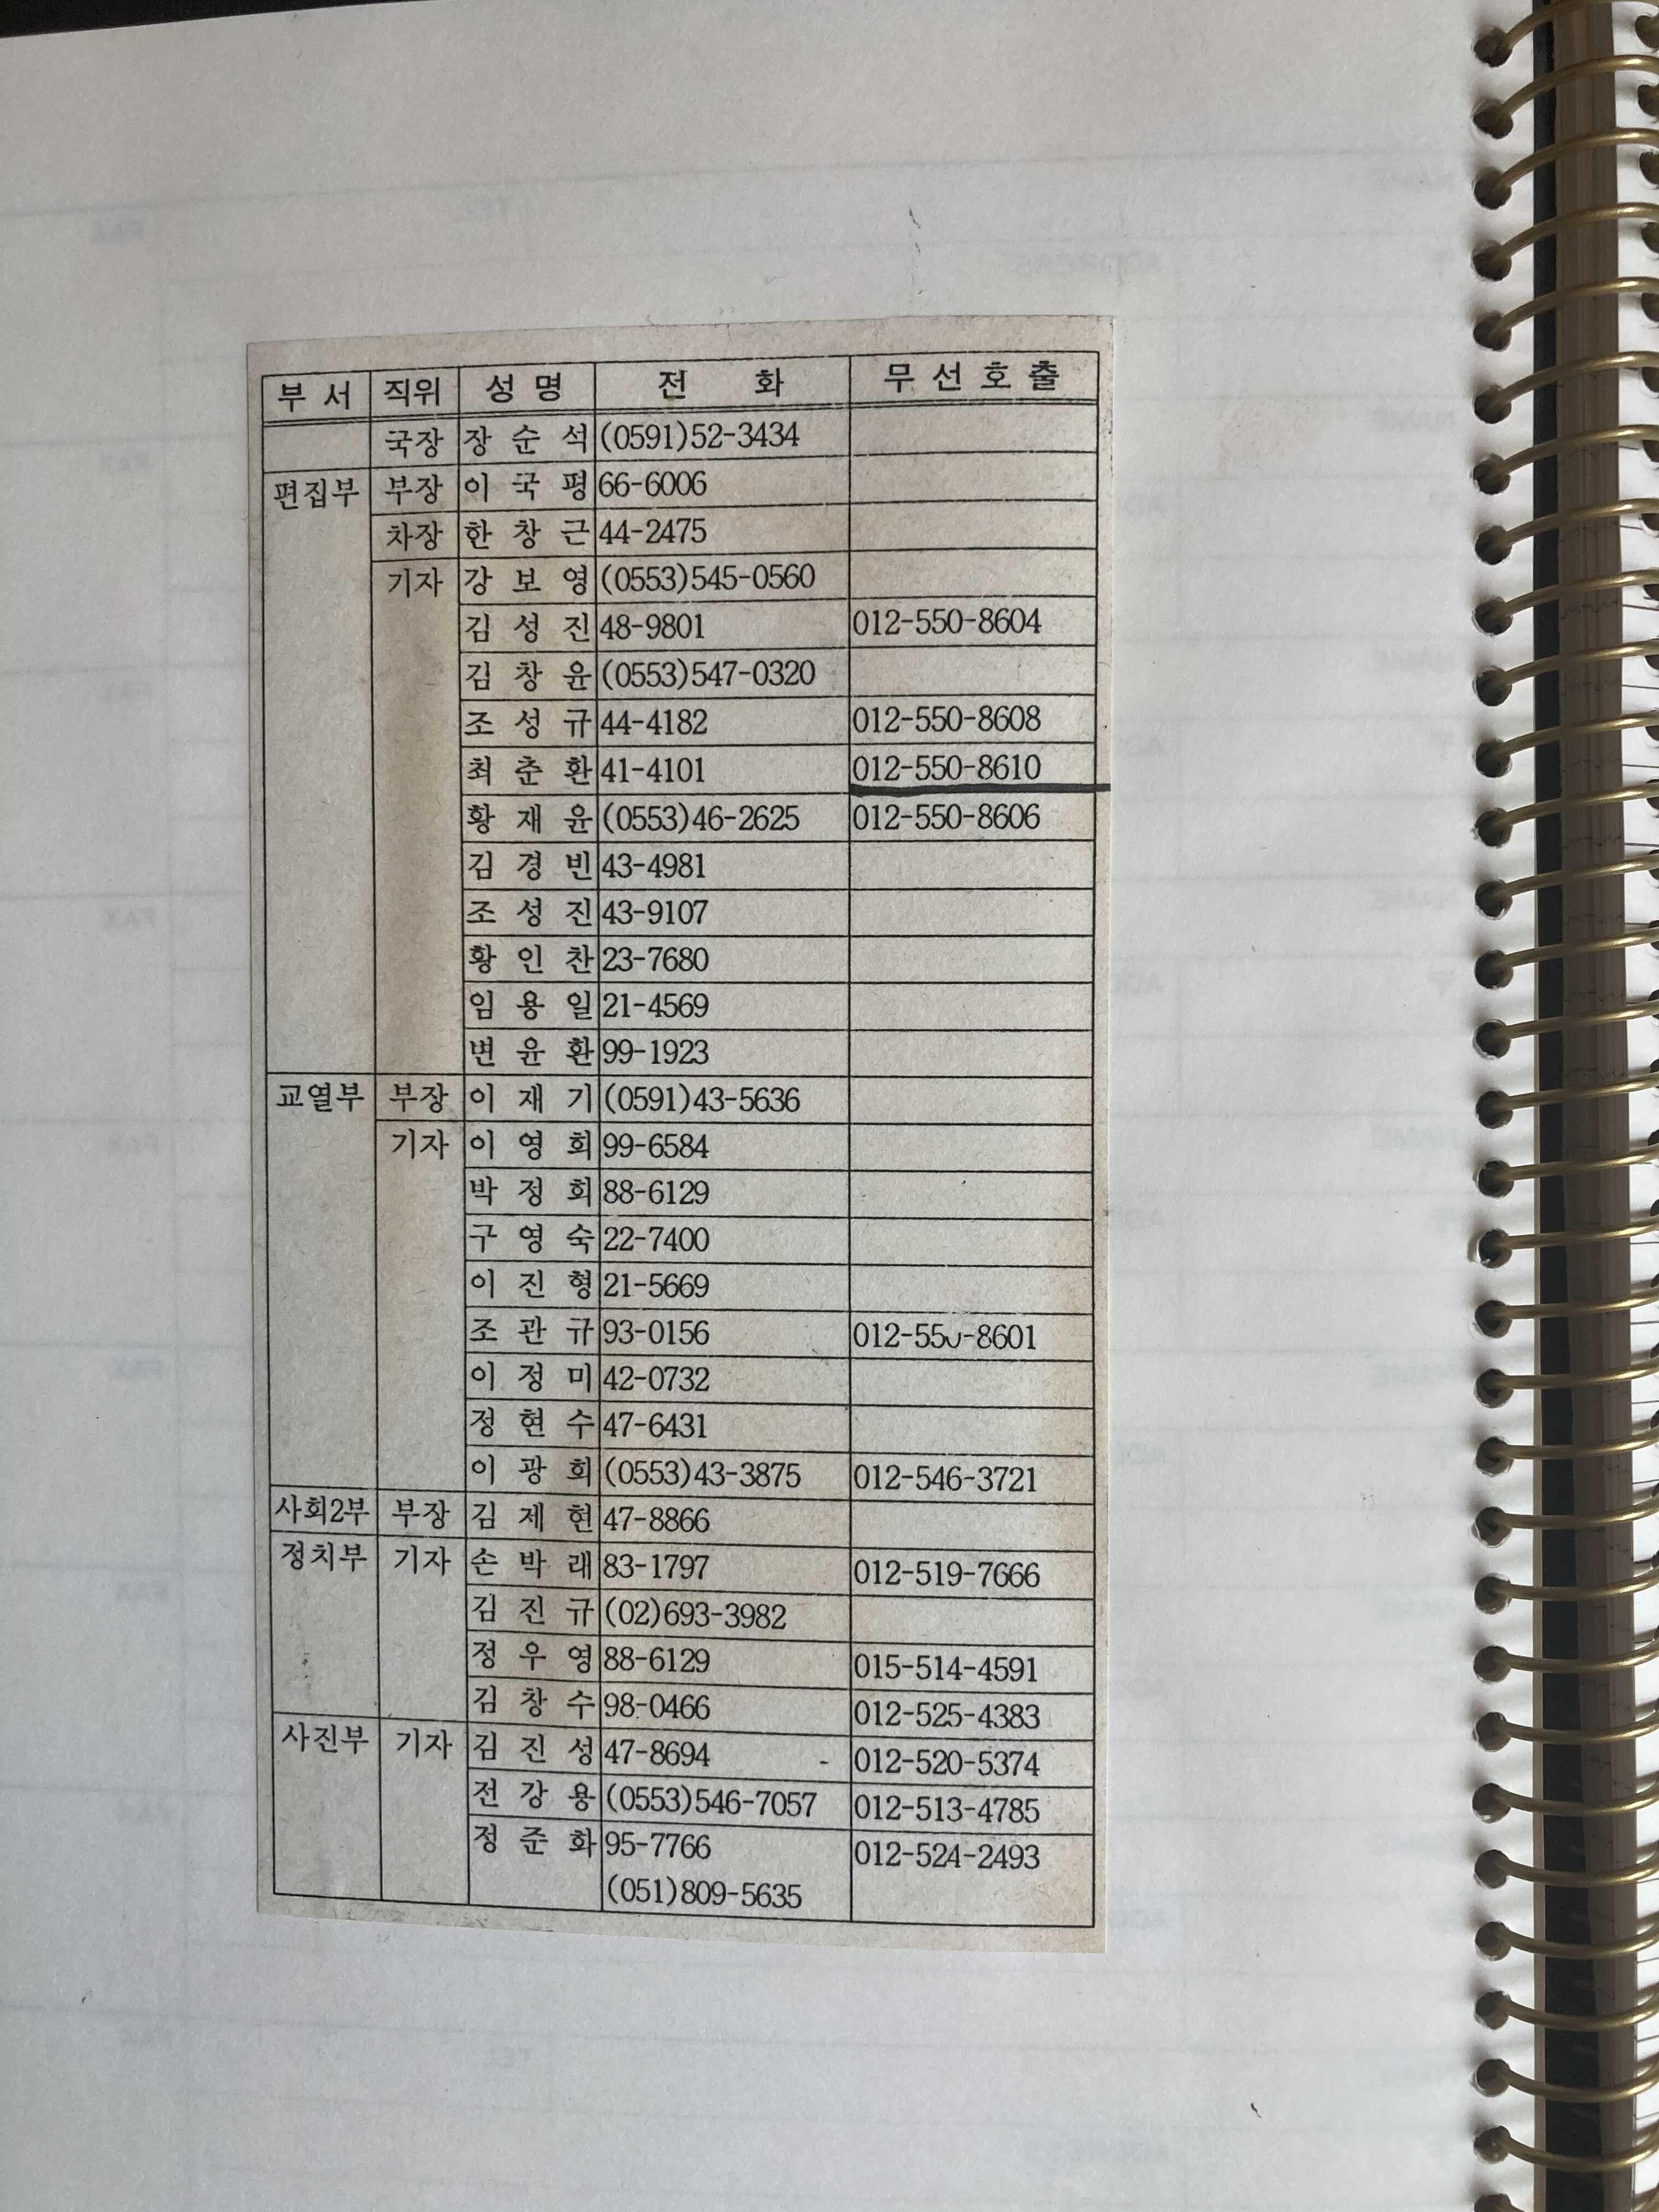 부 서 직위 성 명 전 화 무 선 호 출
국장 장 순 석 (0591)52-3434
편집부 부장 이 국 평 66-6006
차장 한 창 근 44-2475
기자 강 보 영 (0553)545-0560
김 성 진 48-9801 012-550-8604
김 창 윤 (0553)547-0320
조 성 규 44-4182 012-550-8608
최 춘 환 41-4101 012-550-8610
황 재 윤 (0553)46-2625 012-550-8606
김 경 빈 43-4981
조 성 진 43-9107
황 인 찬 23-7680
임 용 일 21-4569
변 윤 환 99-1923
교열부 부장 이 재 기 (0591)43-5636
기자 이 영 희 99-6584
박 정 희 88-6129
구 영 숙 22-7400
이 진 형 21-5669
조 관 규 93-0156 012-550-8601
이 정 미 42-0732
정 현 수 47-6431
이 광 희 (0553)43-3875 012-546-3721
사회2부 부장 김 제 현 47-8866
정치부 기자 손 박 래 83-1797 012-519-7666
김 진 규 (02)693-3982
정 우 영 88-6129 015-514-4591
김 창 수 98-0466 012-525-4383
사진부 기자 김 진 성 47-8694 - 012-520-5374
전 강 용 (0553)546-7057 012-513-4785
정 준 화 95-7766 012-524-2493
(051)809-5635